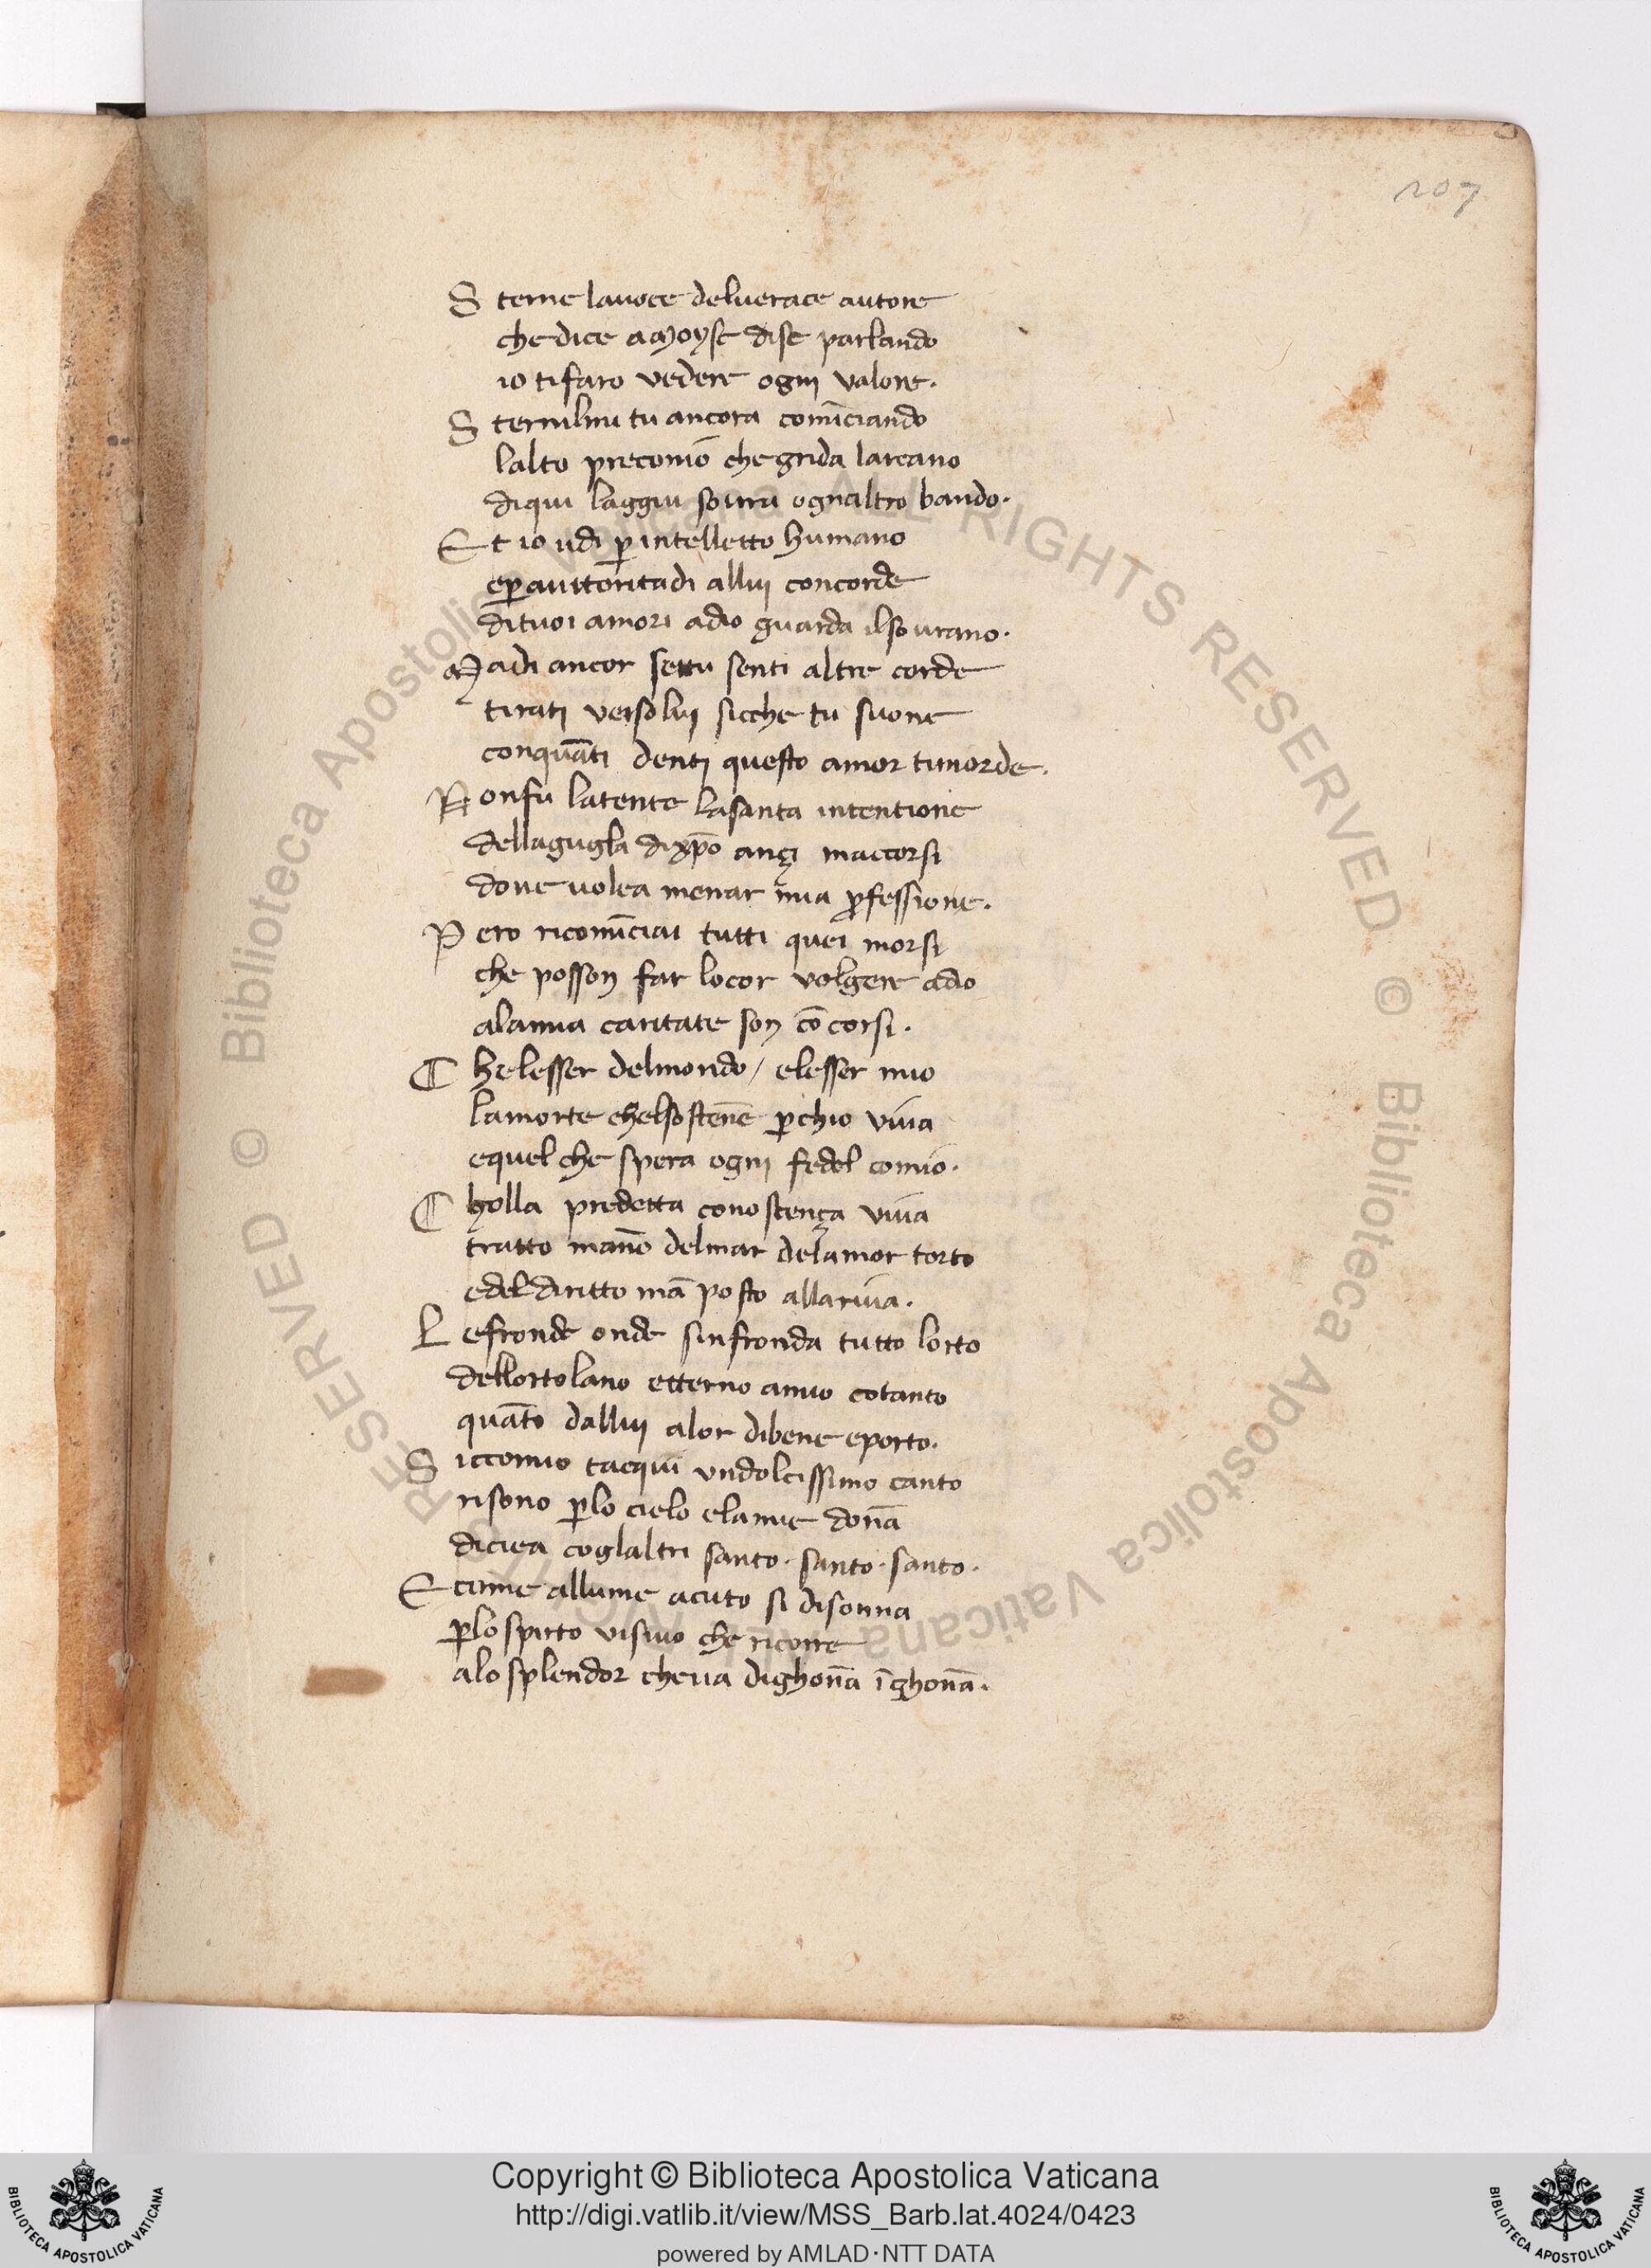 207
S terne lauoce deluerace autore
che dice a moyse dise parlando
io tifaro vedere ogni valore.
S ternilmi tu ancora comīciando
lalto preconio che grida larcano
diqui laggiu soura ognaltro bando.
E t io udi ꝑ intelletto humano
eꝑ auttoritadi allui concorde
dituoi amori adio guarda ilsourano.
M adi ancor settu senti altre corde
tirati verso lui sicche tu suone
conquāti denti questo amor timorde.
N onfu latente lasanta intentione
dellagugla dixp̄o ançi maccorsi
doue uolea menar mia ꝓfessione.
P ero ricomīciai tutti quei morsi
che posson far locor volgere adio
alamia caritate son cō corsi.
C helesser delmondo / elesser mio
lamorte chelsostēne ꝑchio viua
equel che spera ogni fedel comio.
C holla predetta conoscença viua
tratto māno delmar delamor torto
edel diritto mā posto allariua.
L efronde onde sinfronda tutto lorto
dellortolano etterno amio cotanto
quāto dallui alor dibene eporto.
S iccomio tacqui vndolcissimo canto
risono ꝑlo cielo elamie donā
diciea coglaltri santo. santo. santo.
E come allume acuto si disonna
ꝑlo spirto visiuo che ricorre
alo splendor cheua dighonā īghonā.
© Biblioteca Apostolica Vaticana ALL RIGHTS RESERVED © Biblioteca Apostolica Vaticana ALL RIGHTS RESERVED
Copyright © Biblioteca Apostolica Vaticana
http://digi.vatlib.it/view/MSS_Barb.lat.4024/0423
powered by AMLAD·NTT DATA
BIBLIOTECA APOSTOLICA VATICANA
BIBLIOTECA APOSTOLICA VATICANA